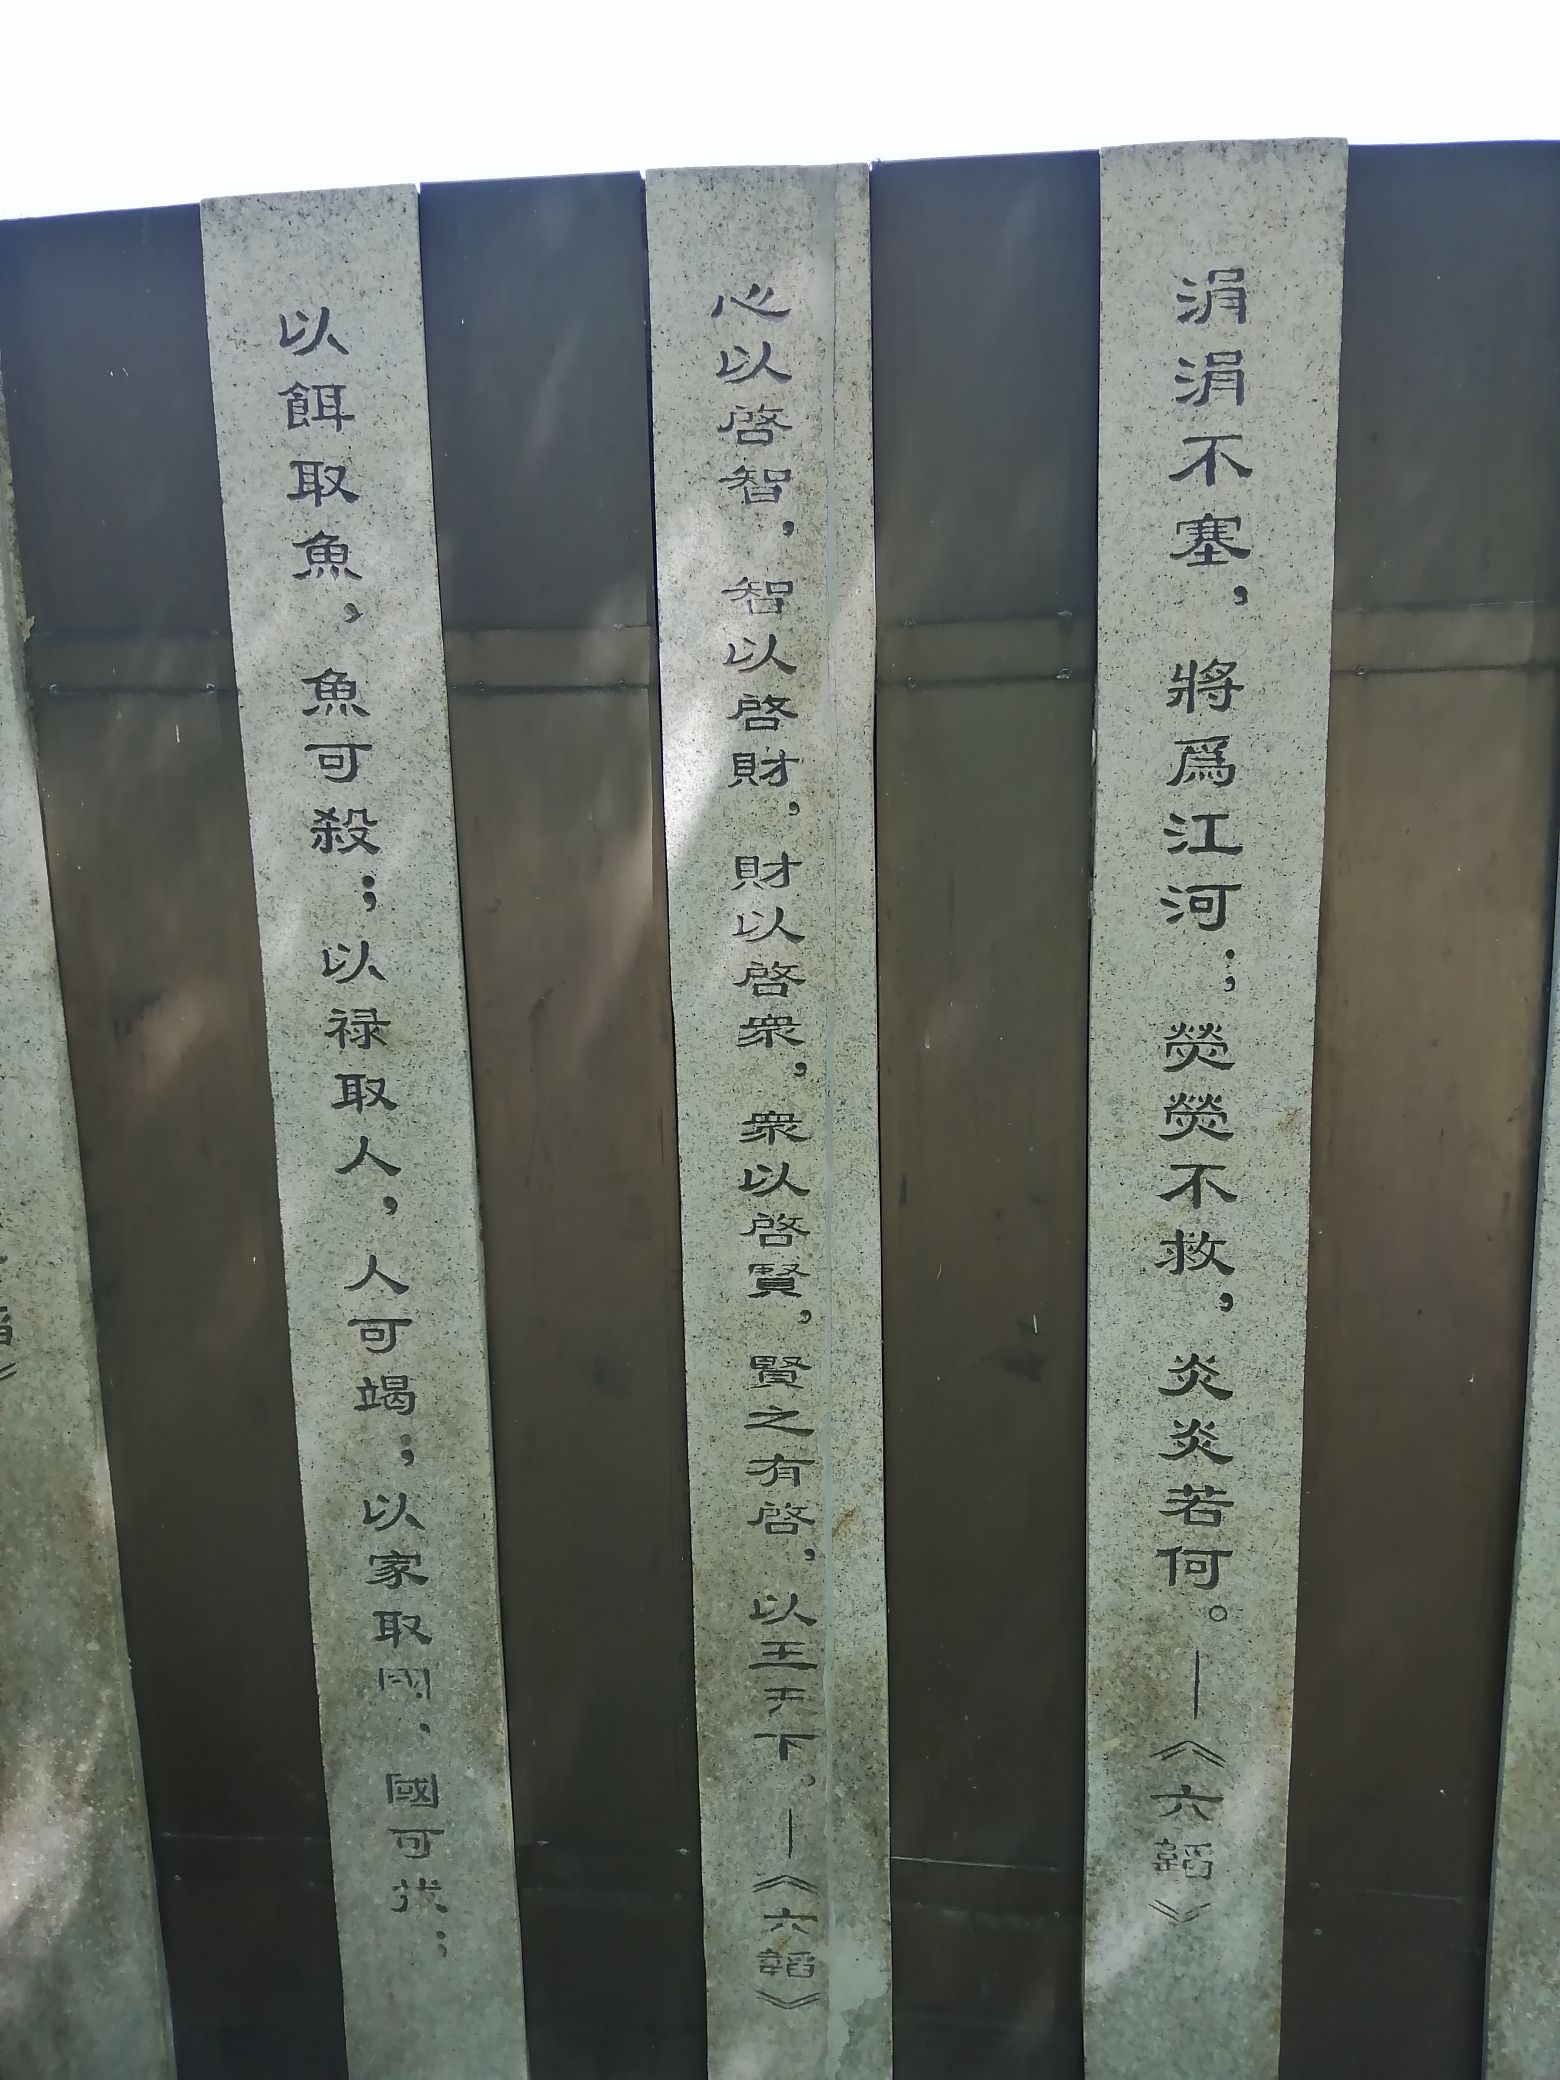 涓涓不塞，將爲江河；熒熒不救，炎炎若何。—《六韜》
心以啓智，智以啓財，財以啓衆，衆以啓賢，賢之有啓，以王天下。—《六韜》
以餌取魚，魚可殺；以禄取人，人可竭；以家取國，國可拔；